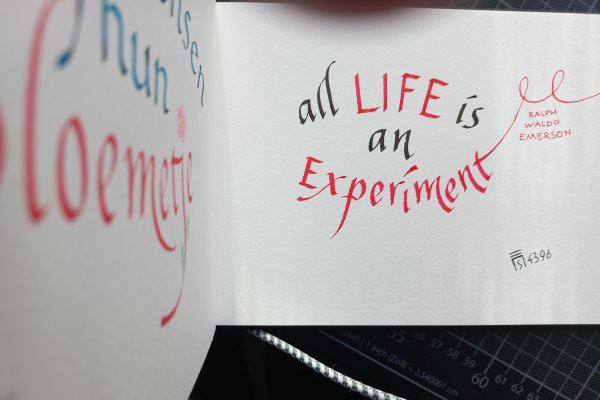 hun
bloemetje
all LIFE is
an
Experiment
RALPH
WALDO
EMERSON
4396
55 56 57 58 59
60 61 62 63
(Zoll) | 1 Inch (Zoll) = 2,54001 cm